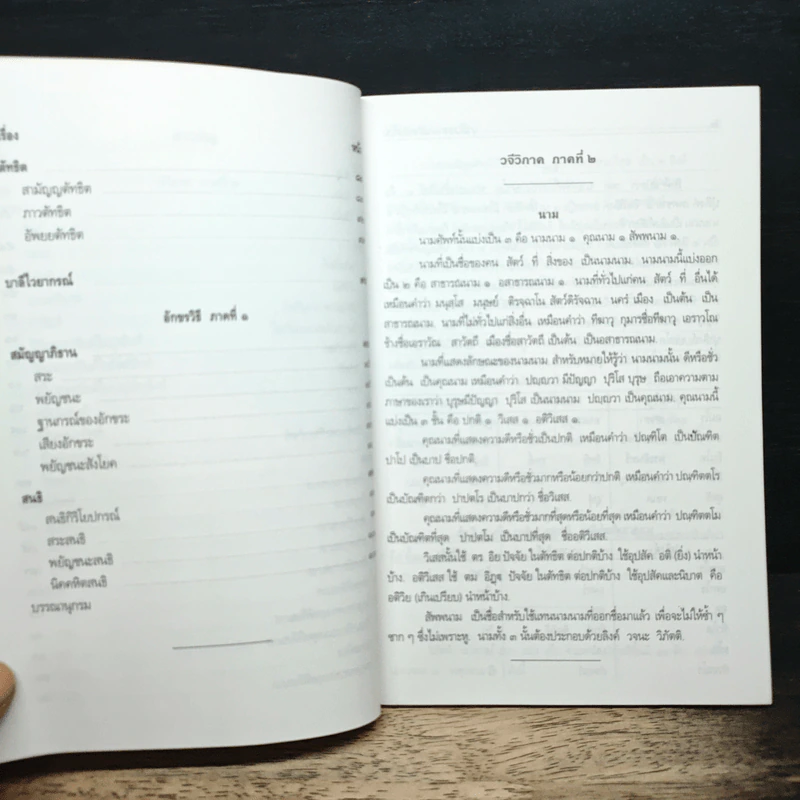 เรื่อง
ตัทธิต
สามัญญตัทธิต
ภาวตัทธิต
อัพยยตัทธิต
บาลีไวยากรณ์
อักขรวิธี ภาคที่ ๑
สมัญญาภิธาน
สระ
พยัญชนะ
ฐานกรณ์ของอักขระ
เสียงอักขระ
พยัญชนะสังโยค
สนธิ
สนธิกิริโยปกรณ์
สระสนธิ
พยัญชนะสนธิ
นิคคหิตสนธิ
บรรณานุกรม
วจีวิภาค ภาคที่ ๒
นาม
นามศัพท์นั้นแบ่งเป็น ๓ คือ นามนาม ๑ คุณนาม ๑ สัพพนาม ๑.
นามที่เป็นชื่อของคน สัตว์ ที่ สิ่งของ เป็นนามนาม. นามนามนี้แบ่งออก
เป็น ๒ คือ สาธารณนาม ๑ อสาธารณนาม ๑. นามที่ทั่วไปแก่คน สัตว์ ที่ อื่นได้
เหมือนคำว่า มนุสฺโส มนุษย์ ติรจฺฉาโน สัตว์ดิรัจฉาน นครํ เมือง เป็นต้น เป็น
สาธารณนาม. นามที่ไม่ทั่วไปแก่สิ่งอื่น เหมือนคำว่า ทีฆาวุ กุมารชื่อทีฆาวุ เอราวโณ
ช้างชื่อเอราวัณ สาวตฺถี เมืองชื่อสาวัตถี เป็นต้น เป็นอสาธารณนาม.
นามที่แสดงลักษณะของนามนาม สำหรับหมายให้รู้ว่า นามนามนั้น ดีหรือชั่ว
เป็นต้น เป็นคุณนาม เหมือนคำว่า ปญฺญวา มีปัญญา ปุริโส บุรุษ ถือเอาความตาม
ภาษาของเราว่า บุรุษมีปัญญา ปุริโส เป็นนามนาม ปญฺญวา เป็นคุณนาม. คุณนามนี้
แบ่งเป็น ๓ ชั้น คือ ปกติ ๑ วิเสส ๑ อติวิเสส ๑.
คุณนามที่แสดงความดีหรือชั่วเป็นปกติ เหมือนคำว่า ปณฺฑิโต เป็นบัณฑิต
ปาโป เป็นบาป ชื่อปกติ.
คุณนามที่แสดงความดีหรือชั่วมากหรือน้อยกว่าปกติ เหมือนคำว่า ปณฺฑิตตโร
เป็นบัณฑิตกว่า ปาปตโร เป็นบาปกว่า ชื่อวิเสส.
คุณนามที่แสดงความดีหรือชั่วมากที่สุดหรือน้อยที่สุด เหมือนคำว่า ปณฺฑิตตโม
เป็นบัณฑิตที่สุด ปาปตโม เป็นบาปที่สุด ชื่ออติวิเสส.
วิเสสนั้นใช้ ตร อิย ปัจจัย ในตัทธิต ต่อปกติบ้าง ใช้อุปสัค อติ (ยิ่ง) นำหน้า
บ้าง. อติวิเสส ใช้ ตม อิฏฺฐ ปัจจัย ในตัทธิต ต่อปกติบ้าง ใช้อุปสัคและนิบาต คือ
อติวิย (เกินเปรียบ) นำหน้าบ้าง.
สัพพนาม เป็นชื่อสำหรับใช้แทนนามนามที่ออกชื่อมาแล้ว เพื่อจะไม่ให้ซ้ำ ๆ
ซาก ๆ ซึ่งไม่เพราะหู. นามทั้ง ๓ นั้นต้องประกอบด้วยลิงค์ วจนะ วิภัตติ.